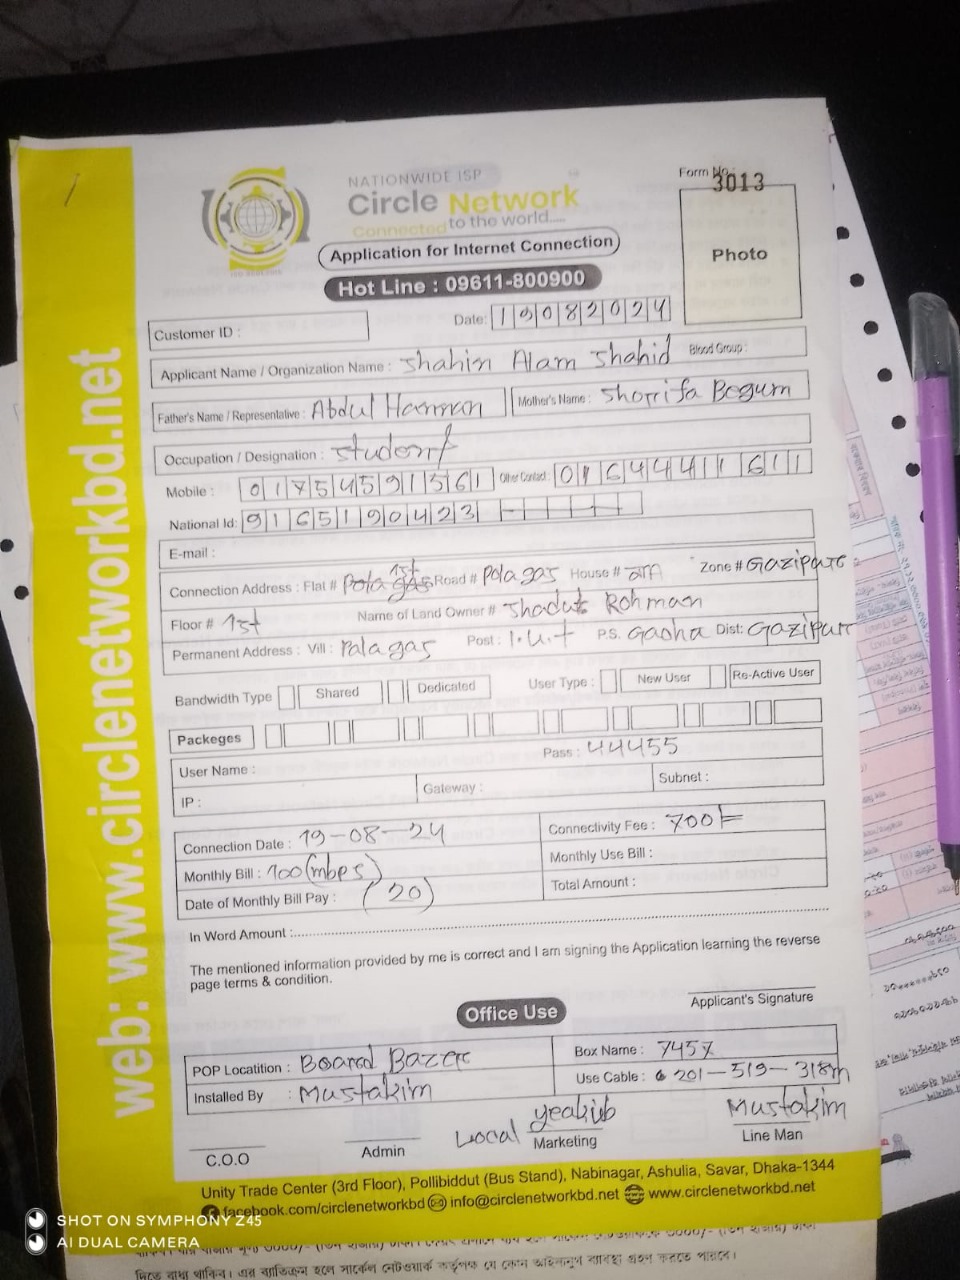 NATIONWIDE ISP
Circle Network
Connected to the world.....
Form No. 3013
Photo
Application for Internet Connection
Hot Line : 09611-800900
Date: 19082024
Customer ID :
Applicant Name / Organization Name : Shahin Alam Shahid Blood Group :
Father's Name / Representative : Abdul Hannan Mother's Name : Shorifa Begum
Occupation / Designation : Student
Mobile : 01754591361 Other Contact : 01644411611
National Id: 9165190423
E-mail :
Connection Address : Flat # 1st Road # Pola gas House # Zone # Gazipur
Floor # 1st Name of Land Owner # Shadut Rohman
Permanent Address : Vill : Palagas Post : I.U.T P.S. Gacha Dist: Gazipur
Bandwidth Type Shared Dedicated User Type : New User Re-Active User
Packeges
User Name : Pass : 44455
IP : Gateway : Subnet :
Connection Date : 19-08-24 Connectivity Fee : 700/=
Monthly Bill : 100 (mbps) Monthly Use Bill :
Date of Monthly Bill Pay : (20) Total Amount :
In Word Amount :
The mentioned information provided by me is correct and I am signing the Application learning the reverse
page terms & condition.
Applicant's Signature
Office Use
POP Locatition : Board Bazer Box Name : 7457
Installed By : Mustakim Use Cable : 201-519-318m
Local yeakub Mustakim
C.O.O Admin Marketing Line Man
Unity Trade Center (3rd Floor), Pollibiddut (Bus Stand), Nabinagar, Ashulia, Savar, Dhaka-1344
facebook.com/circlenetworkbd.net info@circlenetworkbd.net www.circlenetworkbd.net
web: www.circlenetworkbd.net
SHOT ON SYMPHONY Z45
AI DUAL CAMERA
দিতে বাধ্য থাকিব। এর ব্যতিক্রম হলে সার্কেল নেটওয়ার্ক কর্তৃপক্ষ যে কোন আইনানুগ ব্যবস্থা গ্রহন করতে পারবে।